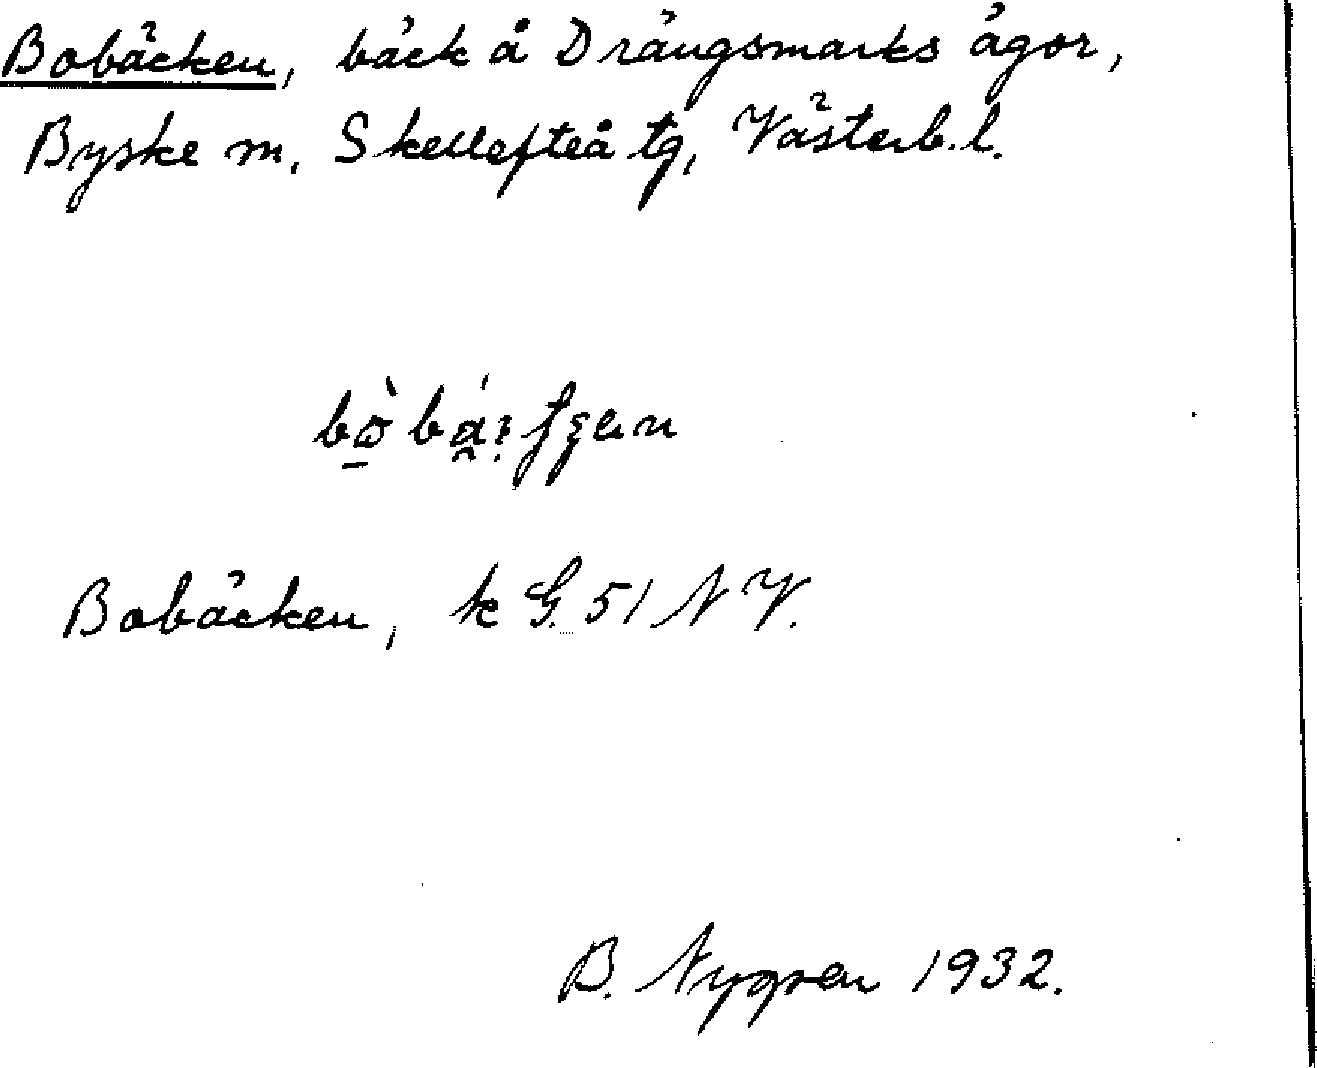 Bobäcken, bäck å Drängsmarks ägor,
Byske m. Skellefteå tg, Västerb. l.
Bobäcken, k G. 51 N V.
B. Nygren 1932.